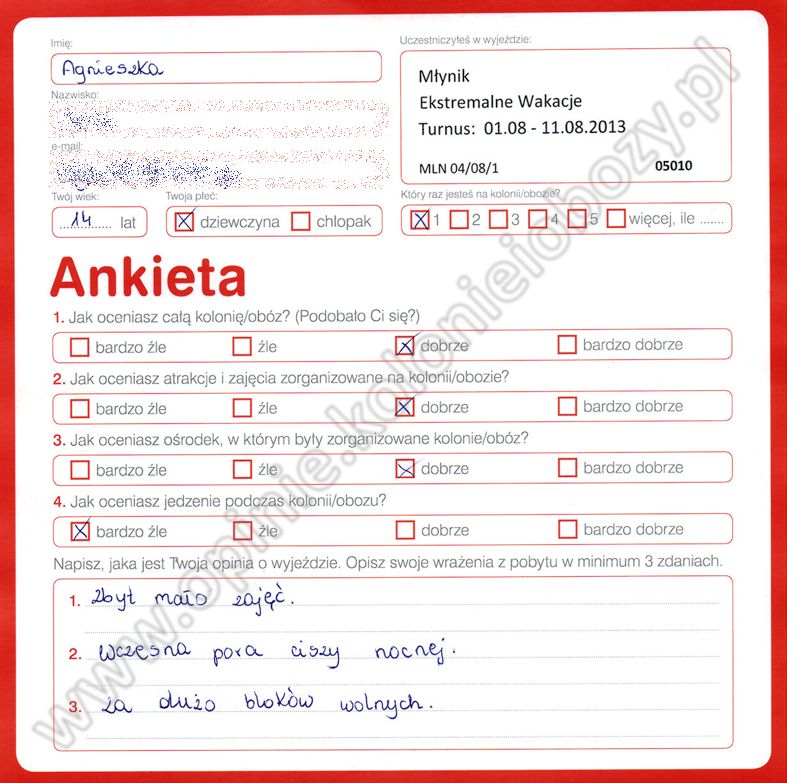 Imię:
Agnieszka
Nazwisko:
e-mail:
Twój wiek:
14 lat
Twoja płeć:
dziewczyna chłopak
Uczestniczyłeś w wyjeździe:
Młynik
Ekstremalne Wakacje
Turnus: 01.08 - 11.08.2013
MLN 04/08/1 05010
Który raz jesteś na kolonii/obozie?
1 2 3 4 5 więcej, ile .......
Ankieta
1. Jak oceniasz całą kolonię/obóz? (Podobało Ci się?)
bardzo źle źle dobrze bardzo dobrze
2. Jak oceniasz atrakcje i zajęcia zorganizowane na kolonii/obozie?
bardzo źle źle dobrze bardzo dobrze
3. Jak oceniasz ośrodek, w którym były zorganizowane kolonie/obóz?
bardzo źle źle dobrze bardzo dobrze
4. Jak oceniasz jedzenie podczas kolonii/obozu?
bardzo źle źle dobrze bardzo dobrze
Napisz, jaka jest Twoja opinia o wyjeździe. Opisz swoje wrażenia z pobytu w minimum 3 zdaniach.
1. zbyt mało zajęć.
2. Wczesna pora ciszy nocnej.
3. za dużo bloków wolnych.
www.opinie.kolonieiobozy.pl